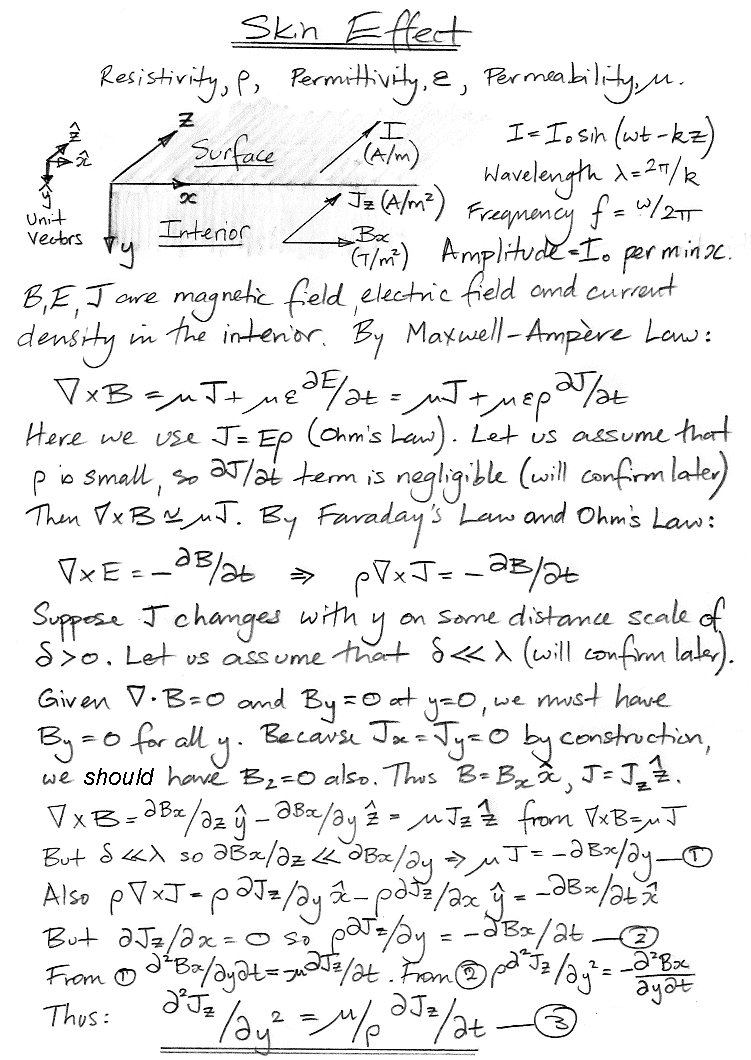 Skin Effect
Resistivity, ρ, Permittivity, ε, Permeability, μ.
ẑ
x̂
ŷ
Unit
Vectors
z
Surface
x
Interior
y
I
(A/m)
Jz (A/m²)
Bx
(T/m²)
I = I₀ sin (ωt - kz)
Wavelength λ = 2π/k
Frequency f = ω/2π
Amplitude = I₀ per m in x.
B, E, J are magnetic field, electric field and current
density in the interior. By Maxwell-Ampère Law:
∇×B = μJ + με ∂E/∂t = μJ + μερ ∂J/∂t
Here we use J = Eρ (Ohm's Law). Let us assume that
ρ is small, so ∂J/∂t term is negligible (will confirm later)
Then ∇×B ≃ μJ. By Faraday's Law and Ohm's Law:
∇×E = -∂B/∂t ⇒ ρ∇×J = -∂B/∂t
Suppose J changes with y on some distance scale of
δ>0. Let us assume that δ≪λ (will confirm later).
Given ∇·B=0 and By=0 at y=0, we must have
By=0 for all y. Because Jx=Jy=0 by construction,
we should have Bz=0 also. Thus B=Bx x̂, J=Jz ẑ.
∇×B = ∂Bx/∂z ŷ - ∂Bx/∂y ẑ = μJz ẑ from ∇×B=μJ
But δ≪λ so ∂Bx/∂z ≪ ∂Bx/∂y ⇒ μJ = -∂Bx/∂y —①
Also ρ∇×J = ρ ∂Jz/∂y x̂ - ρ∂Jz/∂x ŷ = -∂Bx/∂t x̂
But ∂Jz/∂x = 0 so ρ∂Jz/∂y = -∂Bx/∂t —②
From ① ∂²Bx/∂y∂t = -μ∂Jz/∂t. From ② ρ∂²Jz/∂y² = -∂²Bx/∂y∂t
Thus: ∂²Jz/∂y² = μ/ρ ∂Jz/∂t —③